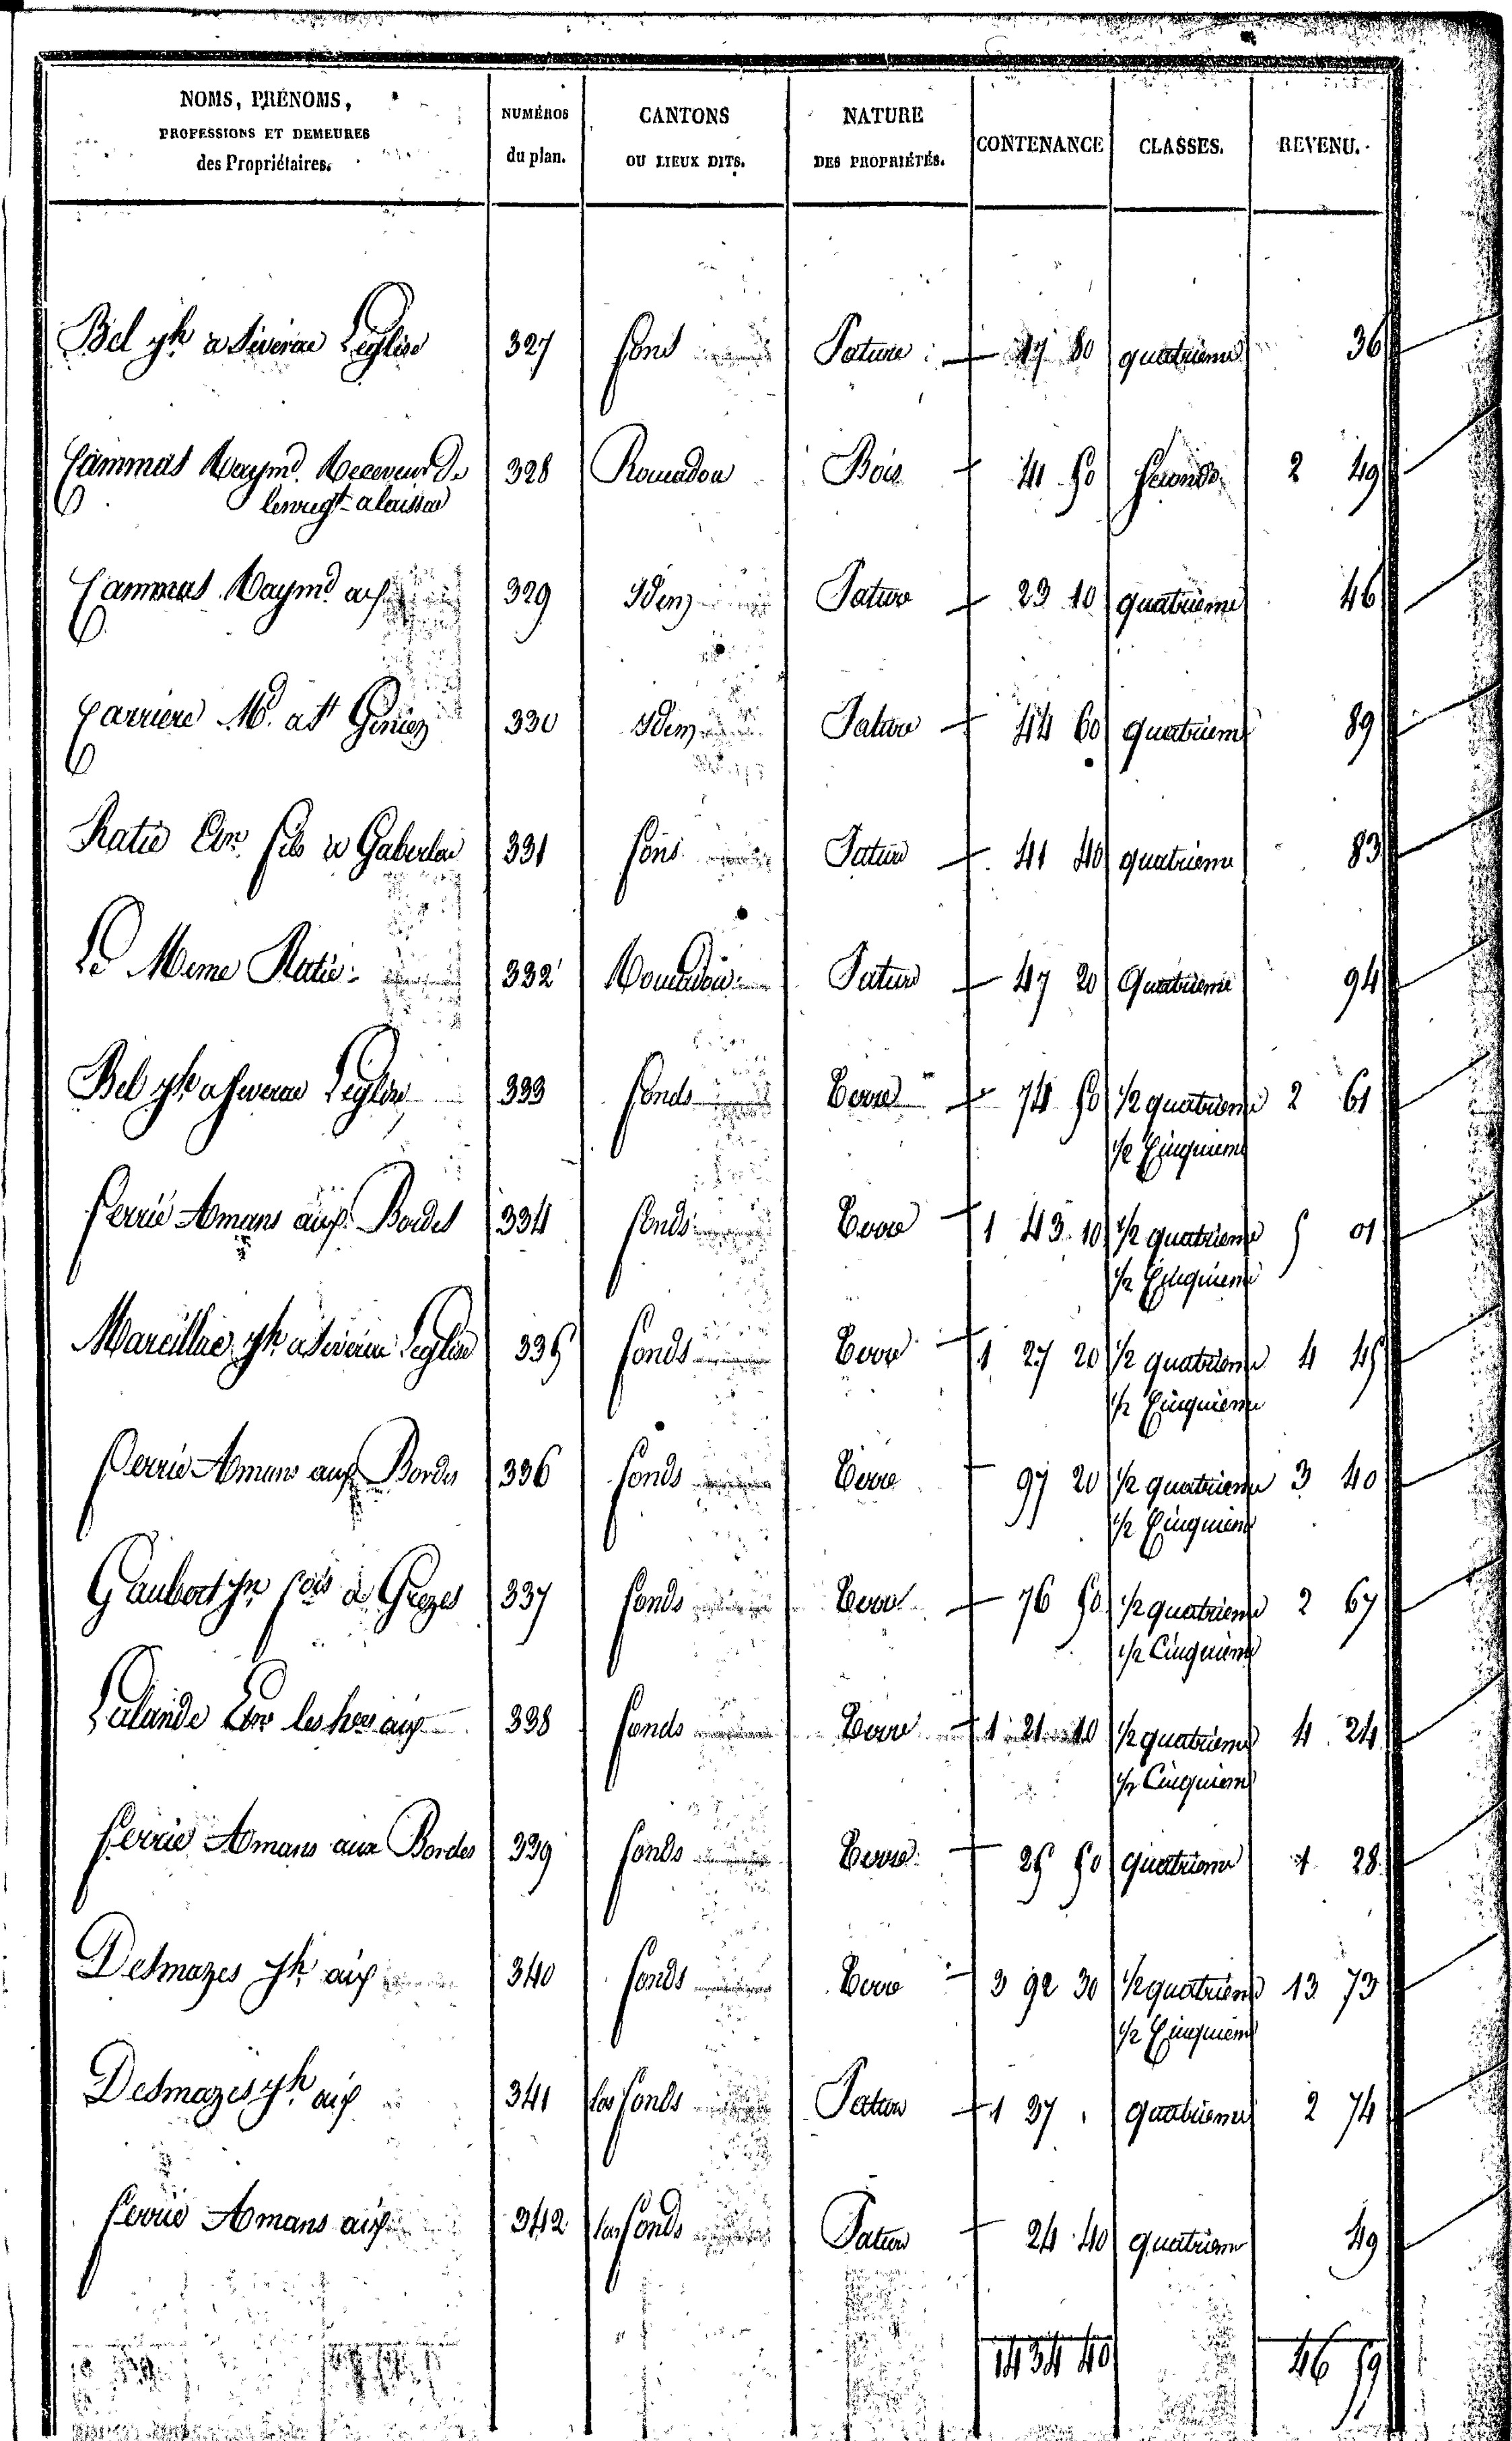 NOMS, PRÉNOMS,
PROFESSIONS ET DEMEURES
des Propriétaires.
NUMÉROS
du plan.
CANTONS
OU LIEUX DITS.
NATURE
DES PROPRIÉTÉS.
CONTENANCE
CLASSES.
REVENU.
Bel jh a Siverac Léglise 327 fons Pature 17 80 quatrieme 36
Cammas Raymd. Receveur De 328 Roucadou Bois 41 50 Seconde 2 49
lenregt a laissac
Cammas Raymd 329 Idem Pature 23 10 quatrieme 46
Carriere Md. a St Geniez 330 Idem Pature 44 60 quatrieme 89
Ratié fils a 331 fons Pature 41 40 quatrieme 83
Le Meme Ratié 332 Roucadou Pature 47 20 Quatrieme 94
Bel jh a Siverac Leglise 333 fonds Terre 74 50 1/2 quatrieme 2 61
1/2 Cinquieme
ferrié Amans aux Bordes 334 fonds Terre 1 43 10 1/2 quatrieme 5 01
1/2 Cinquieme
Marcillac jh a Siverac Leglise 335 fonds Terre 1 27 20 1/2 quatrieme 4 45
1/2 Cinquieme
ferrié Amans aux Bordes 336 fonds Terre 97 20 1/2 quatrieme 3 40
1/2 Cinquieme
Gaubert jn fois a Grezes 337 fonds Terre 76 50 1/2 quatrieme 2 67
1/2 Cinquieme
Lalande les hers 338 fonds Terre 1 21 10 1/2 quatrieme 4 24
1/2 Cinquieme
ferrié Amans aux Bordes 339 fonds Terre 25 50 quatrieme 1 28
Desmazes jh 340 fonds Terre 3 92 30 1/2 quatrieme 13 73
1/2 Cinquieme
Desmazes jh 341 las fonds Pature 1 37 quatrieme 2 74
ferrié Amans 342 las fonds Pature 24 40 quatrieme 49
14 34 40 46 59